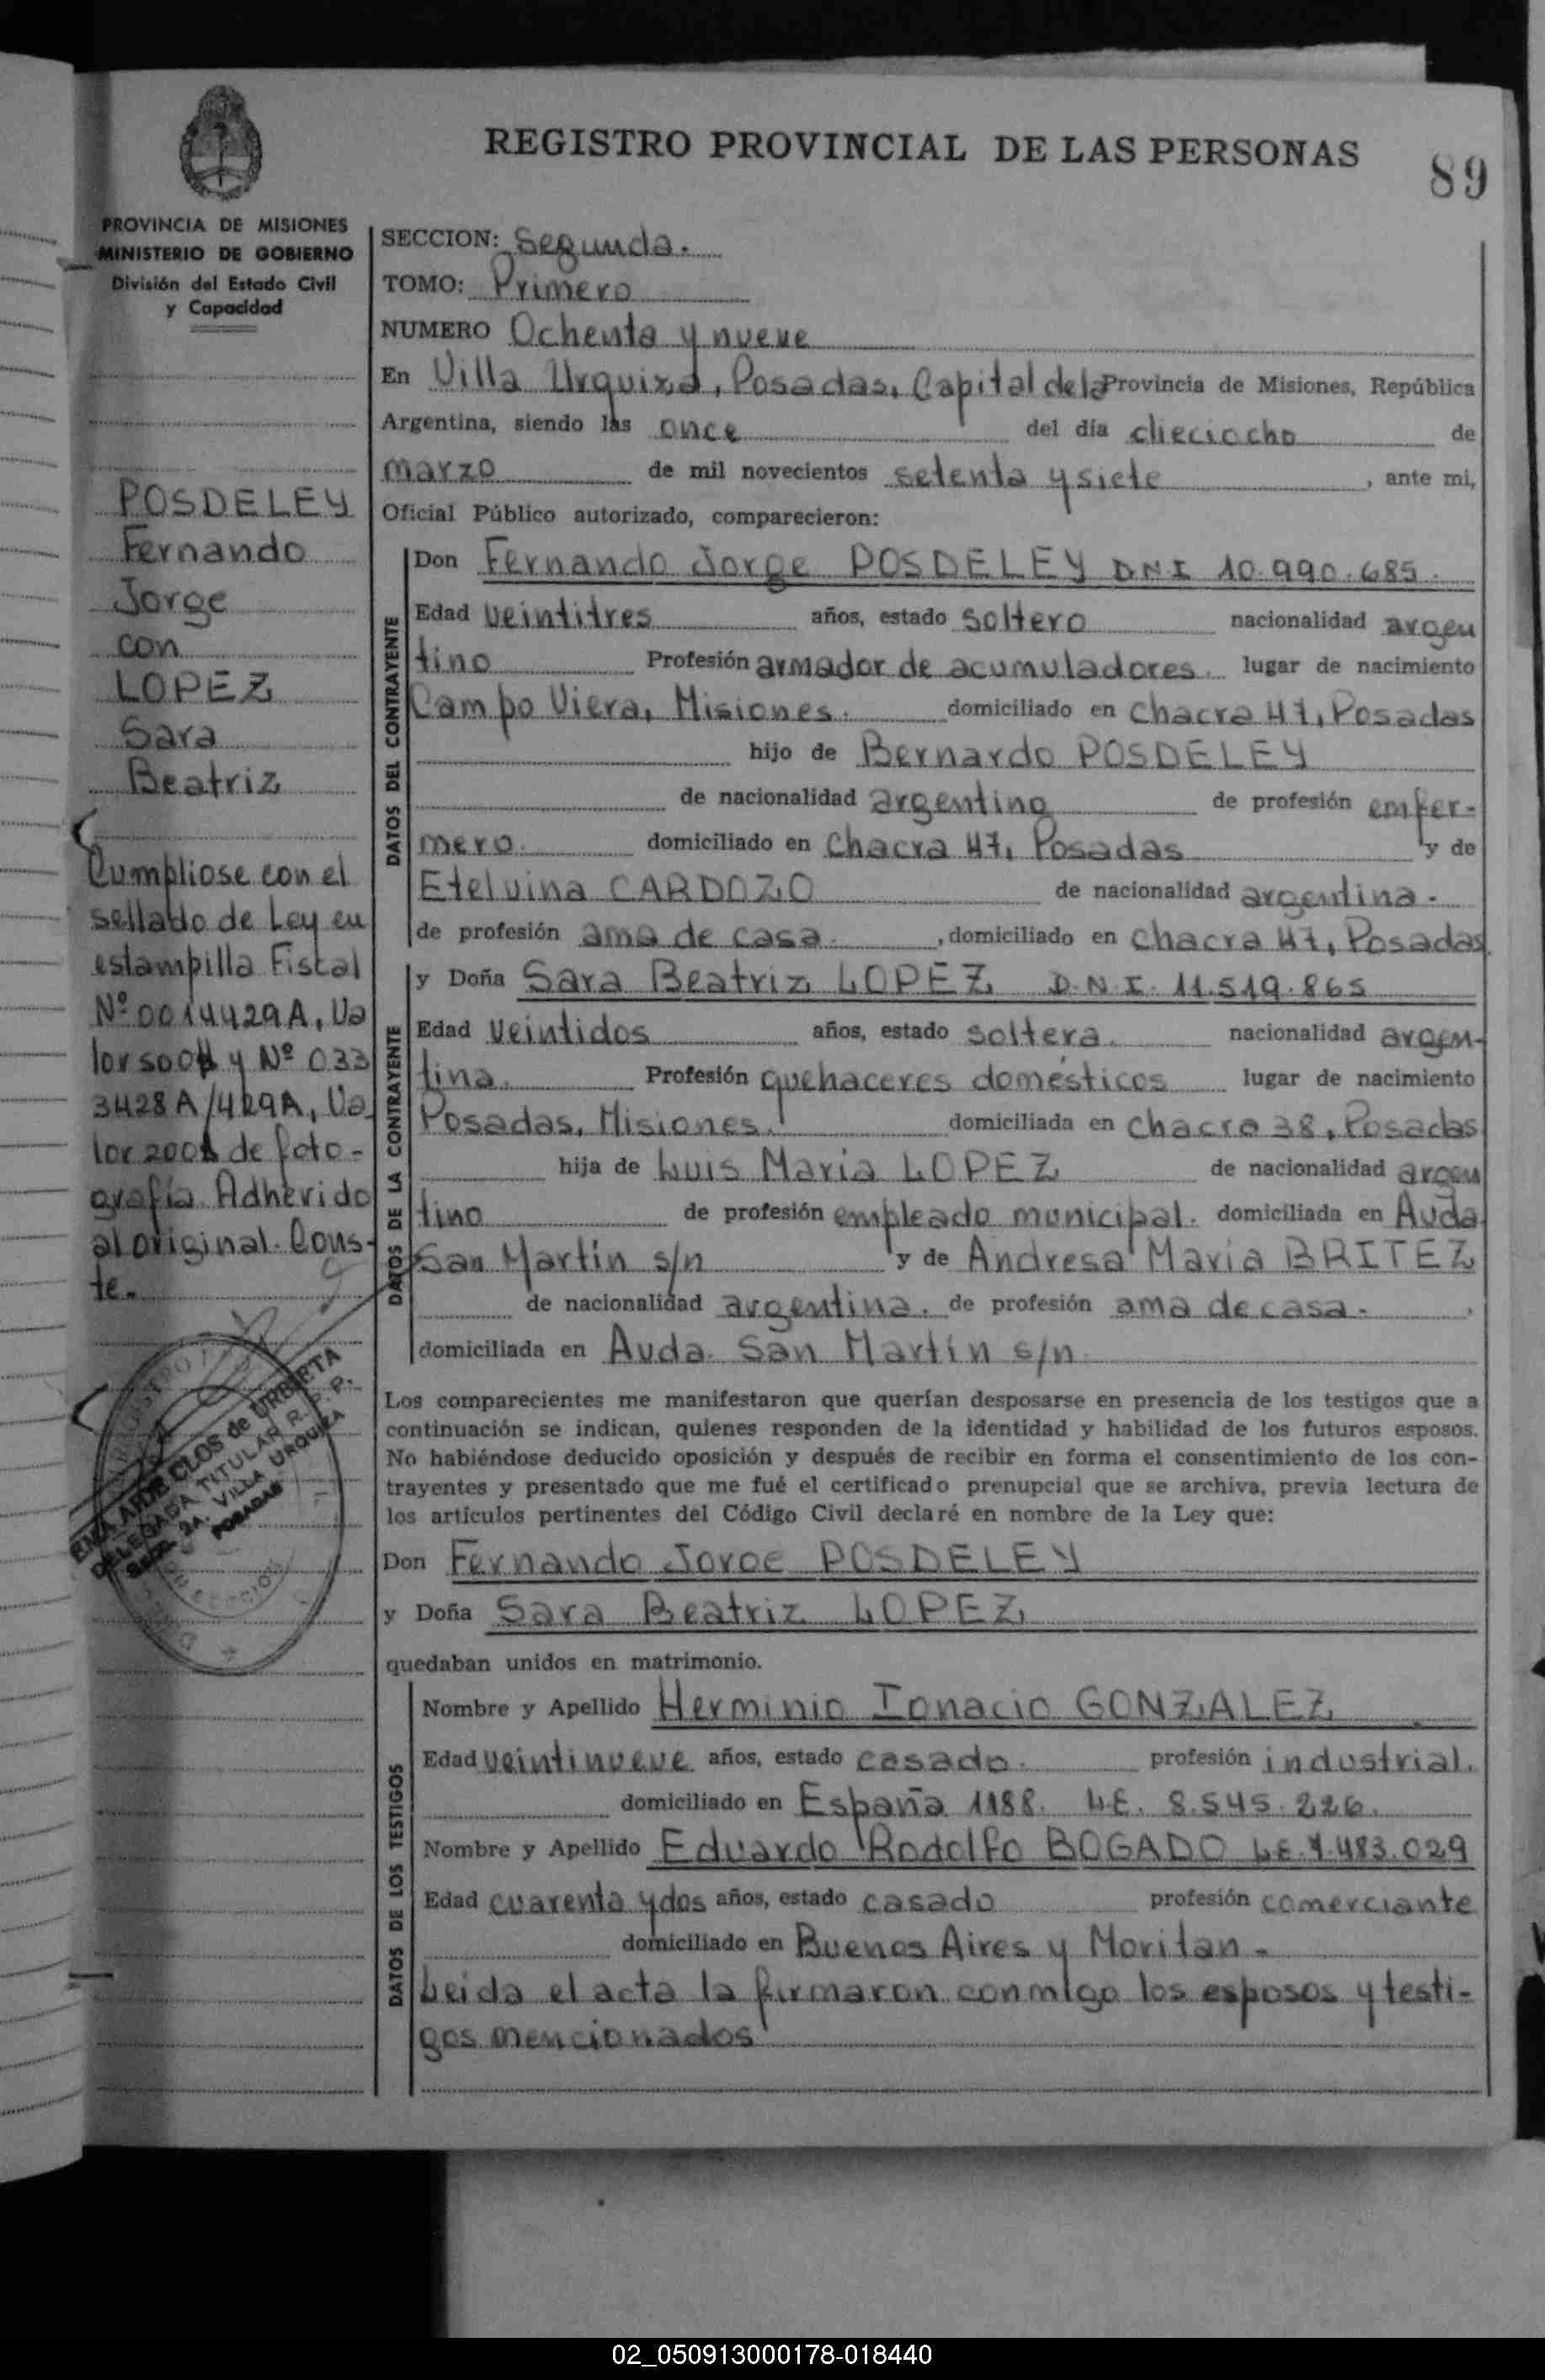 REGISTRO PROVINCIAL DE LAS PERSONAS
89
PROVINCIA DE MISIONES
MINISTERIO DE GOBIERNO
División del Estado Civil
y Capacidad
POSDELEY
Fernando
Jorge
con
LOPEZ
Sara
Beatriz
Cumpliose con el
sellado de Ley en
estampilla Fiscal
Nº 0014429A, Va
lor 500$ y Nº 033
3428A/429A, Va
lor 200$ de foto-
grafía Adherido
al original. Cons-
te.
EMA AIDE CLOS de URBIETA
DELEGADA TITULAR R. P. P.
Secc. 2A. VILLA URQUIZA
POSADAS
SECCION: Segunda.
TOMO: Primero
NUMERO Ochenta y nueve
En Villa Urquiza, Posadas, Capital de la Provincia de Misiones, República
Argentina, siendo las once del día dieciocho de
marzo de mil novecientos setenta y siete, ante mi,
Oficial Público autorizado, comparecieron:
DATOS DEL CONTRAYENTE
Don Fernando Jorge POSDELEY DNI 10.990.685.
Edad veintitres años, estado soltero nacionalidad argen
tino Profesión armador de acumuladores. lugar de nacimiento
Campo Viera, Misiones. domiciliado en Chacra 47, Posadas
hijo de Bernardo POSDELEY
de nacionalidad argentino de profesión enfer-
mero. domiciliado en Chacra 47, Posadas y de
Etelvina CARDOZO de nacionalidad argentina.
de profesión ama de casa. , domiciliado en Chacra 47, Posadas
DATOS DE LA CONTRAYENTE
y Doña Sara Beatriz LOPEZ D.N.I. 11.519.865
Edad veintidos años, estado soltera. nacionalidad argen-
tina. Profesión quehaceres domésticos lugar de nacimiento
Posadas, Misiones. domiciliada en Chacra 38, Posadas
hija de Luis Maria LOPEZ de nacionalidad argen
tino de profesión empleado municipal. domiciliada en Avda
San Martín s/n y de Andresa Maria BRITEZ
de nacionalidad argentina. de profesión ama de casa. ,
domiciliada en Avda. San Martín s/n.
Los comparecientes me manifestaron que querían desposarse en presencia de los testigos que a
continuación se indican, quienes responden de la identidad y habilidad de los futuros esposos.
No habiéndose deducido oposición y después de recibir en forma el consentimiento de los con-
trayentes y presentado que me fué el certificado prenupcial que se archiva, previa lectura de
los artículos pertinentes del Código Civil declaré en nombre de la Ley que:
Don Fernando Jorge POSDELEY
y Doña Sara Beatriz LOPEZ
quedaban unidos en matrimonio.
DATOS DE LOS TESTIGOS
Nombre y Apellido Herminio Ignacio GONZALEZ
Edad veintinueve años, estado casado. profesión industrial.
domiciliado en España 1188. L.E. 8.545.226.
Nombre y Apellido Eduardo Rodolfo BOGADO L.E. 7.483.029
Edad cuarenta y dos años, estado casado profesión comerciante
domiciliado en Buenos Aires y Moritan.
Leida el acta la firmaron conmigo los esposos y testi-
gos mencionados
02_050913000178-018440